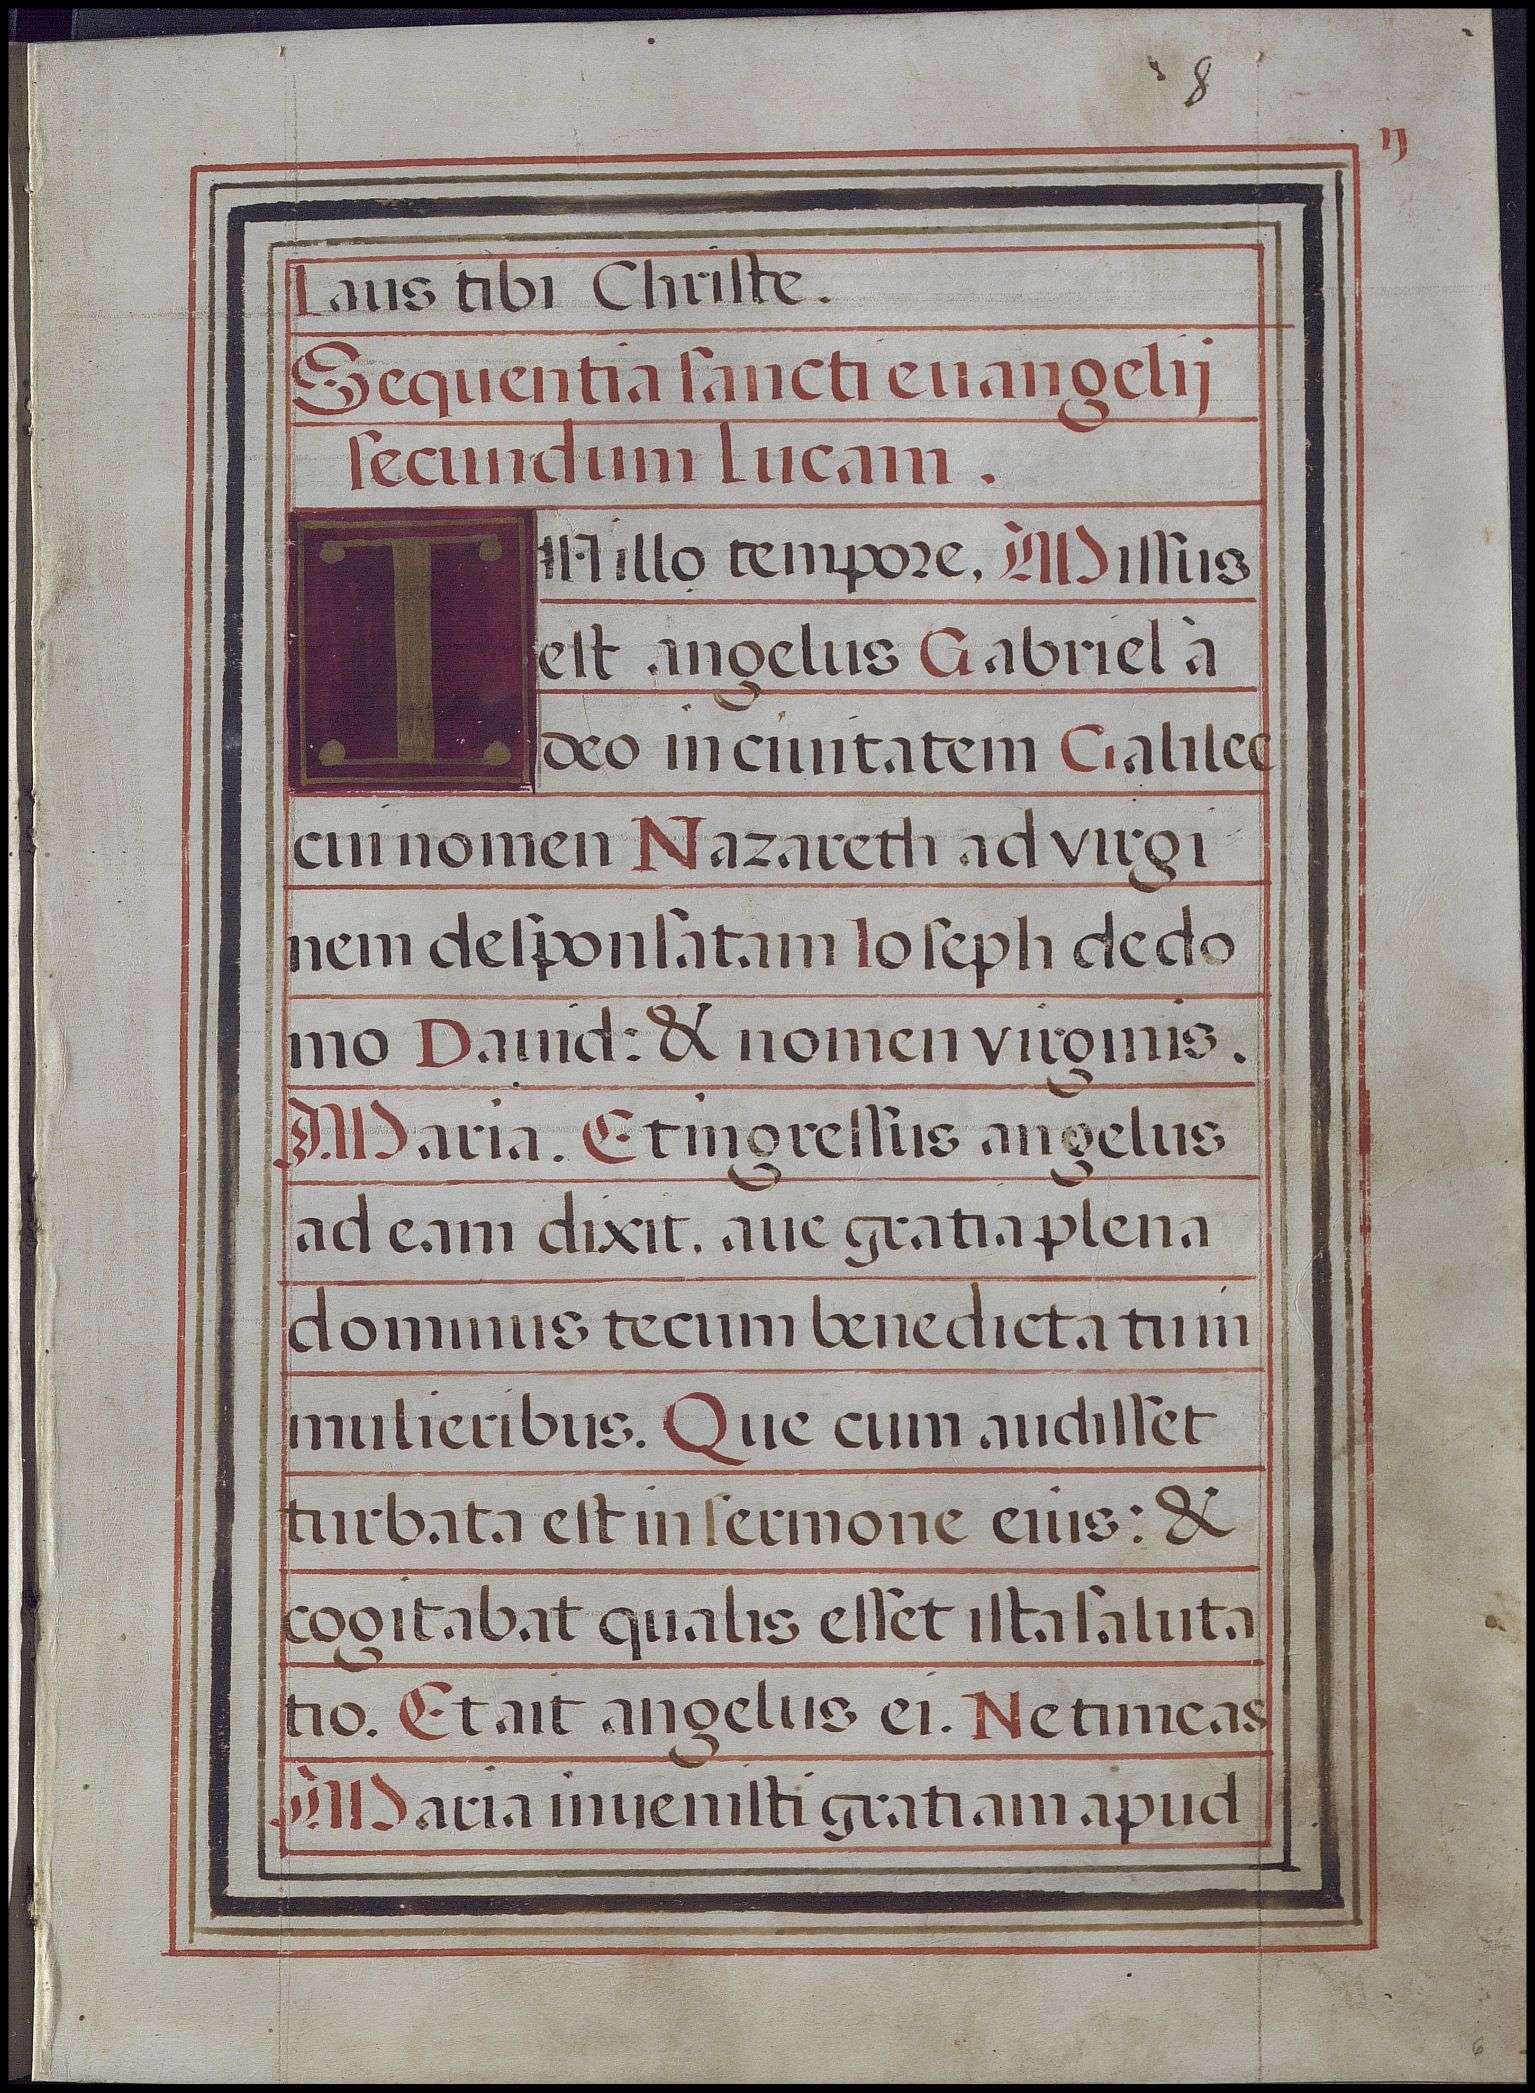 8
ıj
Laus tibi Christe.
Sequentia sancti euangelij
secundum Lucam.
IN illo tempore, Missus
est angelus Gabriel à
deo in ciuitatem Galilee
cui nomen Nazareth ad virgi
nem desponsatam Ioseph de do
mo Dauid: & nomen virginis.
Maria. Et ingressus angelus
ad eam dixit. aue gratia plena
dominus tecum benedicta tu in
mulieribus. Que cum audisset
turbata est in sermone eius: &
cogitabat qualis esset ista saluta
tio. Et ait angelus ei. Ne timeas
Maria inuenisti gratiam apud
6